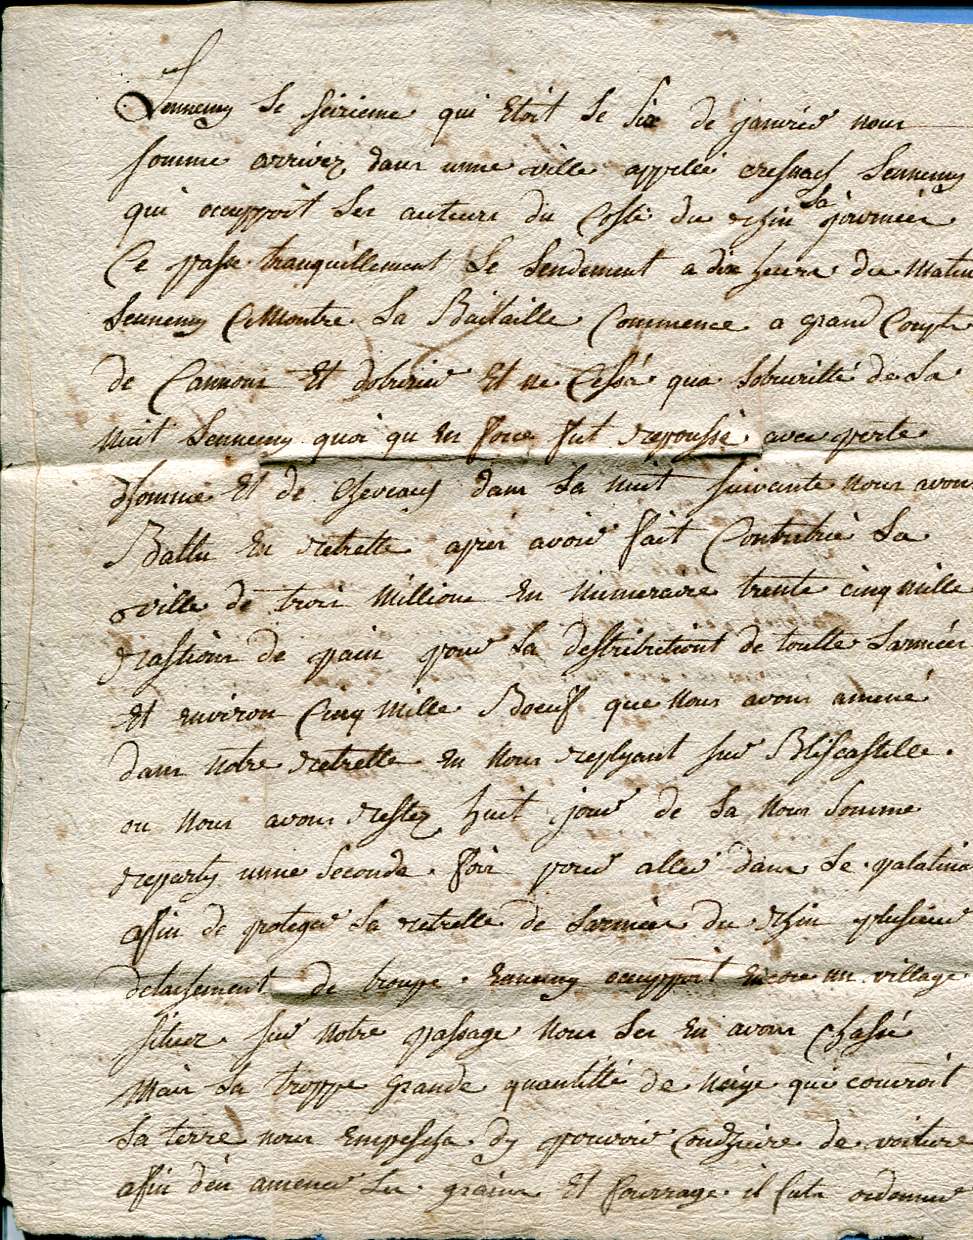 Lennemy le seizieme qui etoit le six de janvier nous
somme arrivez dans unne ville appellé cresnach lennemy
qui occuppoit les auteurs du costé du rhin la journéé
Ce passe tranquillement le lendement a dix heure du matin
lennemy Cemontre la Bataille Commence a grand Couph
de Cannons Et dobusier Et ne Cessa qua lobcurité de la
nuit lennemy quoi qu en force fut repoussé avec perte
dhomme Et de Chevaux dans la nuit suivante nous avons
Battu En retrette apres avoir fait Contribué la
ville de trois Millions En Numeraire trente cinq mille
rastions de pain pour la destributiont de toutte larméé
Et environ Cinq Mille Boeuf que Nous avons amené
dans notre retrette En Nous replyant sur Bliscastelle
ou Nous avons restez huit jour de la Nous Somme
reparty unne Seconde fois pour aller dans le palatina
affin de proteger la retrette de larméé du Rhin plusieur
detachement de troupe Ennemy occuppoit Encore un village
situez sur notre passage Nous les En avons Chassé
Mais la troppe grande quantitté de Neige qui couvroit
la terre nous Empescha dy pouvoir Conduire de voiture
afin den amener les grains Et fourrage il fut ordonner